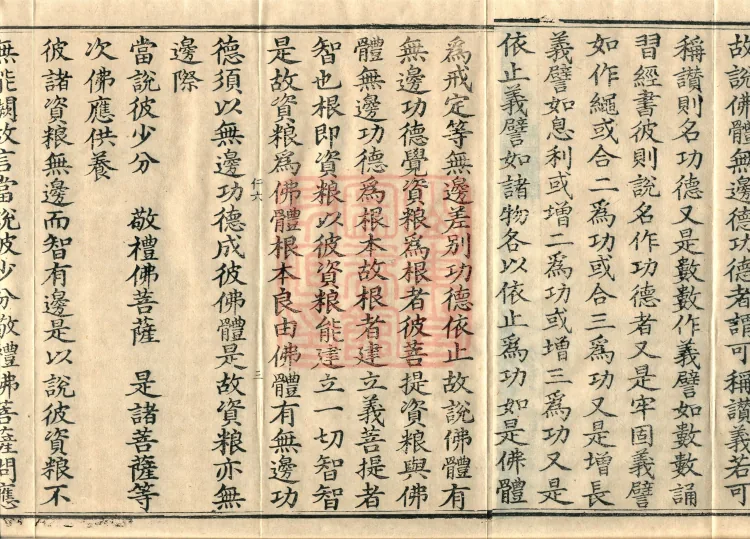 故說佛體無邊德功德者謂可稱讚義若可
稱讚則名功德又是數數作義譬如數數誦
習經書彼則說名作功德者又是牢固義譬
如作繩或合二為功或合三為功又是增長
義譬如息利或增二為功或增三為功又是
依止義譬如諸物各以依止為功如是佛體
為戒定等無邊差别功德依止故說佛體有
無邊功德覺資粮為根者彼菩提資粮與佛
體無邊功德為根本故根者建立義菩提者
智也根即資粮以彼資粮能建立一切智智
是故資粮為佛體根本良由佛體有無邊功
仟六 三
德須以無邊功德成彼佛體是故資粮亦無
邊際
當說彼少分 敬禮佛菩薩 是諸菩薩等
次佛應供養
彼諸資粮無邊而智有邊是以說彼資粮不
無能闕故言當說彼少分敬禮佛菩薩問應